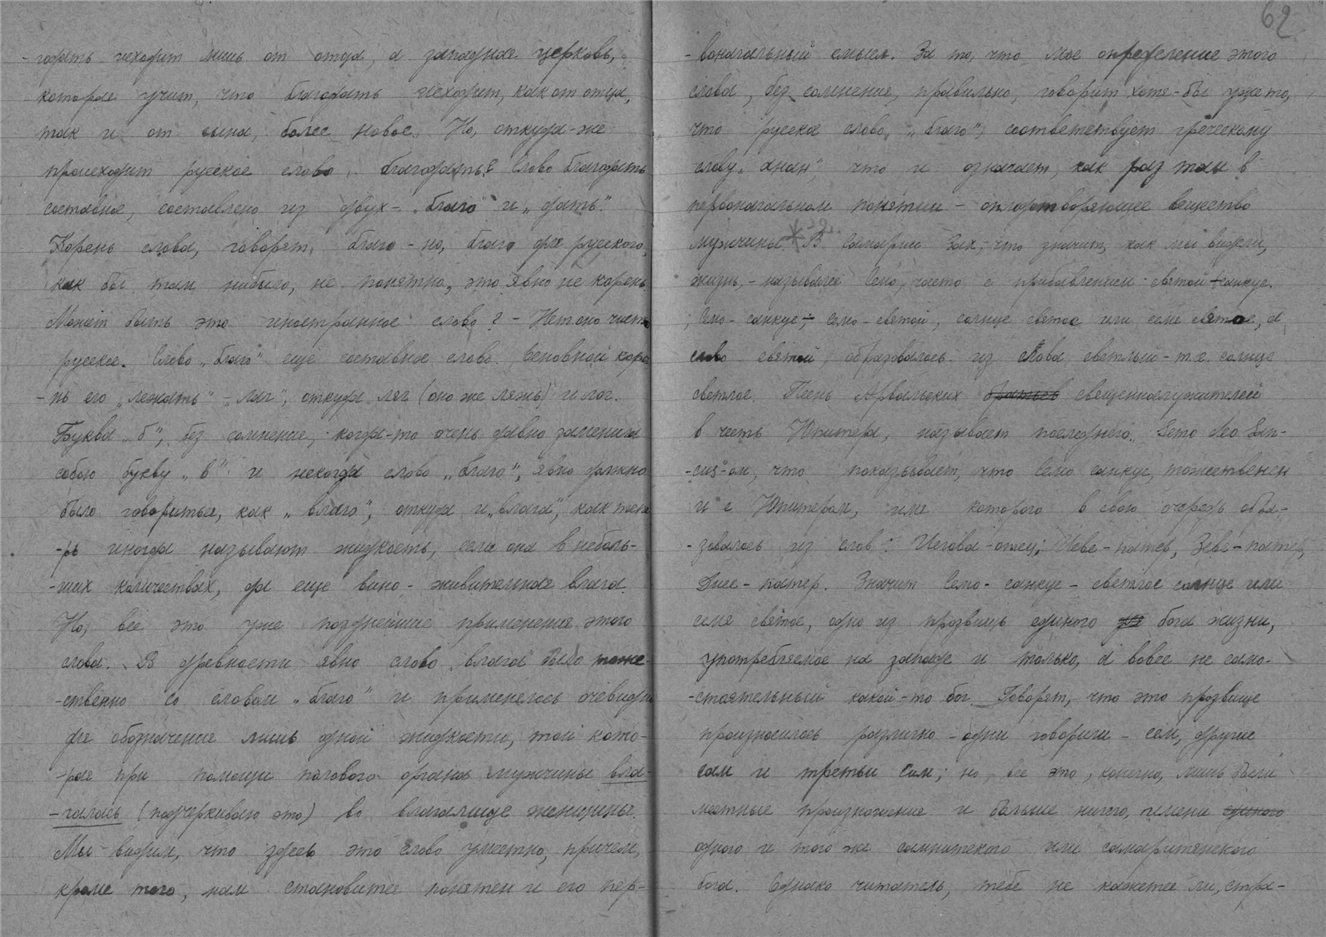 -годать исходит лишь от отца, а западная церковь,
которая учит, что благодать исходит, как от отца,
так и от сына, более новое. Но, откуда-же
происходит русское слово „благодать“? Слово благодать
составное, составлено из двух – „благо“ и „дать“.
Корень слова, говорят, благо – но, благо для русского,
как бы там нибыло, не понятно, это явно не корень
Может быть это иностранное слово? – Нет оно чисто
русское. Слово „благо“ еще составное слово. Основной коре
-нь его „лежать“ – „ляг“, откуда ляг (оно же ляжь) и лог.
Буква „б“, без сомнения, когда-то очень давно заменила
собою букву „в“ и некогда слово „благо“, явно должно
было говориться, как „влаго“, откуда и „влага“, как тепе
-рь иногда называют жидкость, если она в неболь-
-ших количествах, да еще вино – живительная влага.
Но, все это уже позднейшие применения этого
слова. В древности явно слово влага было тоже-
-ственно со словом „благо“ и применялось очевидно
для обозначения лишь одной жидкости, той кото-
-рая при помощи полового органа мужчины вла-
-галась (подчеркиваю это) во влагалище женщины.
Мы видим, что здесь это слово уместно, причем,
кроме того, нам становится понятен и его пер-
62
-воначальный смысл. За то, что мое определение этого
слова, без сомнения, правильно, говорит хоте-бы уже то,
что русское слово „благо“, соответствует греческому
слову „анан“ что и означает, как раз там в
первоначальном понятии – оплодотворяющее вещество
мужчины В Самарии Зах, что значит, как мы видели,
жизнь, – назывался Семо, часто с прибавлением святой – санкус.
Семо-санкус, – Семо-святой, солнце святое или семя святое, а
слово святой, образовалось из слова светлый – т.е. солнце
светлое. Песнь Арвальских братьев священнослужителей
в честь Юпитера, называет последнего
что показывает, что Семо санкус, тожественен
и с Юпитером, имя которого в свою очередь обра-
-зовалось из слов: Иегова-отец; Иеве-патер, Зевс-патер,
Дие-патер. Значит Семо-санкус – светлое солнце или
семя святое, одно из прозвищ единого бога жизни,
употребляемое на западе и только, а вовсе не само-
-стоятельный какой-то бог. Говорят, что это прозвище
произносилось различно – одни говорили – сем, другие
сам и третьи сим; но, все это, конечно, лишь
местные произношения и больше ничего, имени единого
одного и того же самнитского или самаритянского
бога. Однако читатель, тебе не кажется ли, стра-